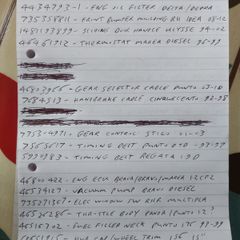 4434793-1 - ENG OIL FILTER DELTA/DEDRA
735358811 - FRONT BUMPER MULTIPLA RH IDEA 08-12
1481193899 - SLIDING DUR HANDLE ULYSSE 94-02
46461912 - THERMOSTAT MAREA DIESEL 96-99
46813966 - GEAR SELECTOR CABLE PUNTO 03-10
7684513 - HANDBRAKE CABLE CINQUECENTO 93-98
7753-4971 - GEAR CONTROL STILO 01-03
7565617 - TIMING BELT PUNTO 90-93
5999983 - TIMING BELT REGATA 1.9D
46800422 - ENG ECU BRAVA/BRAVO/MAREA
46534127 - VACUUM PUMP BRAVO DIESEL
735271367 - ELEC WINDOW SW RHF MULTIPLA
46536286 - THROTTLE BODY PANDA/PUNTO 1.2
46518702 - FUEL FILLER NECK PUNTO
HUB CAP/WHEEL TRIM 15"